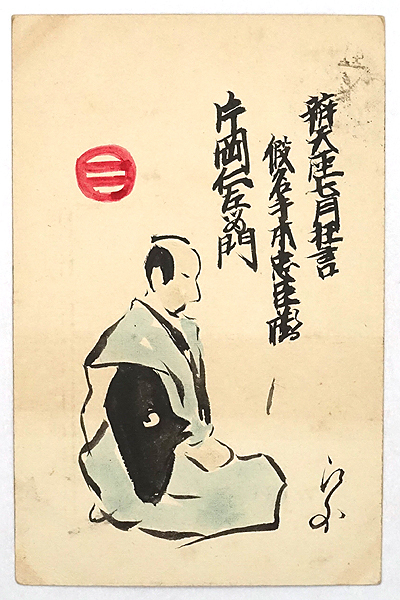 辨天座七月狂言
假名手本忠臣蔵
片岡仁左衛門